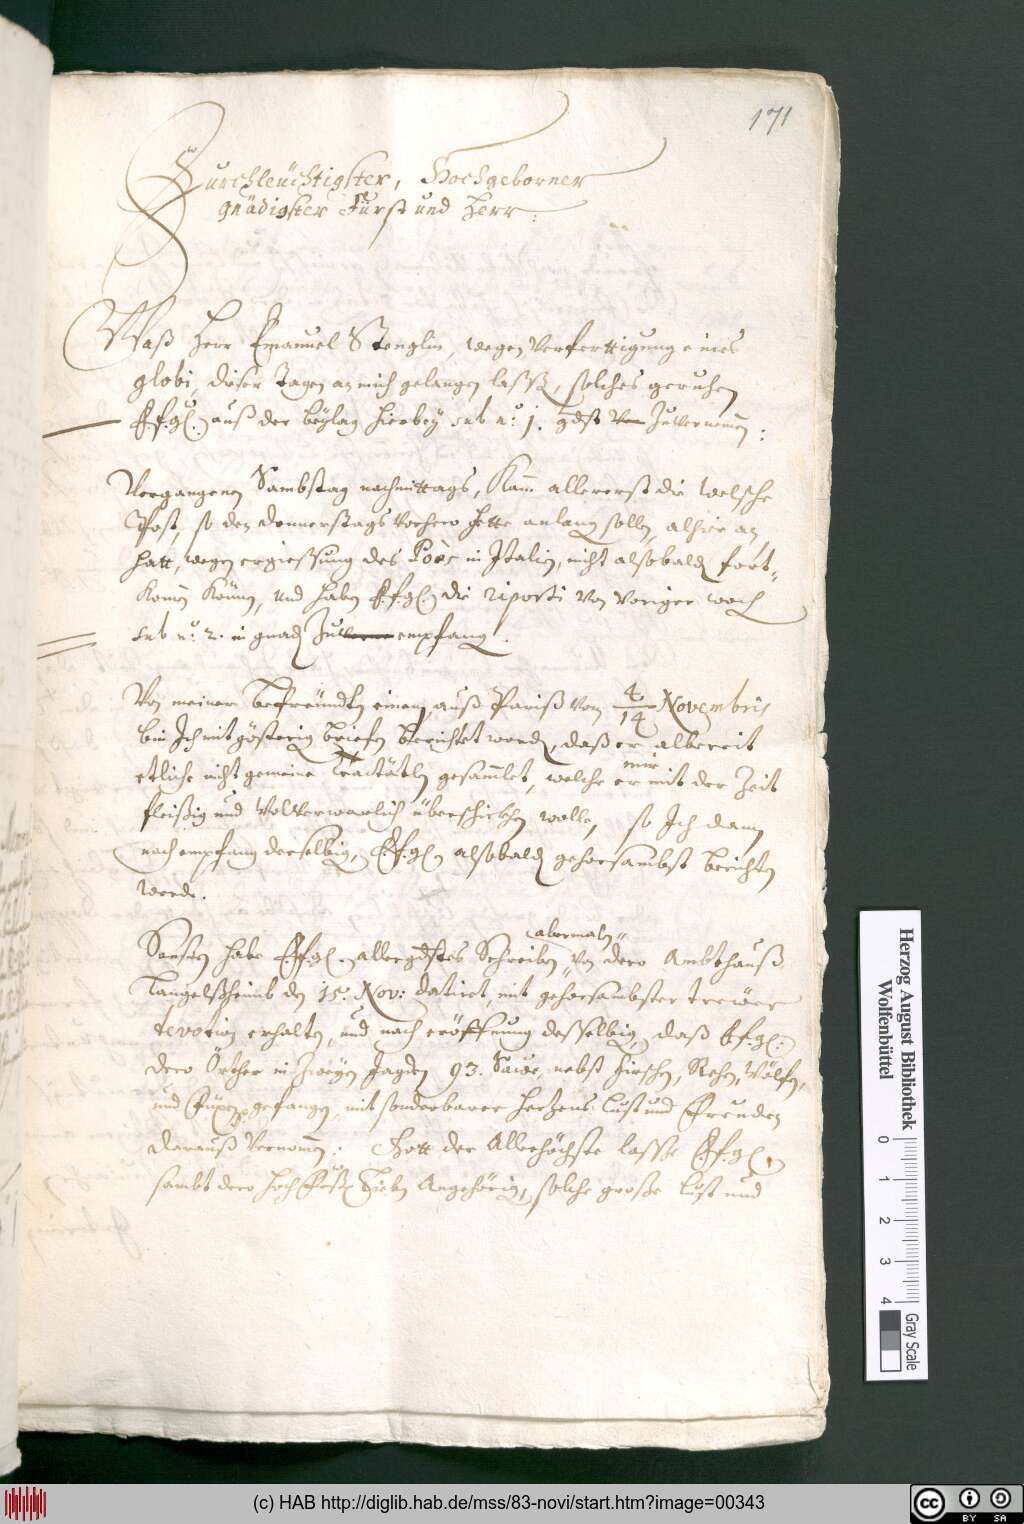 171
Durchleüchtigster, Hochgeborner
gnädigster Fürst und Herr:
Waß Herr Emanuel Stenglin, wegen Verferttigung eines
globi, dieser Tagen an mich gelangen lassß, solches geruhen
E.f.gl. auß der beylag hierbey sub n.º 1. gdst Zuvernemen:
Vergangenen Sambstag nachmittags, Kam allererst die welsche
Post, so den Donnerstags vorhero hette anlang sollen, alhier an,
hatt, wegen ergiessung des Poòs in Italien, nicht alsobald fort-
Komen Könen, und haben E.f.gl. die riporti von voriger woch
sub n.º 2. in gnad Zu empfang.
Von meiner befreündten einem, auß Pariß vom 4/14 Novembris
bin Ich mit gösterig briefen berichtet word, daß er albereit
etliche nicht gemeine Tractätln gesamlet, welche er mir mit der Zeit
fleißig und wolverwarlich überschickhen wolle, so Ich dann
nach empfang derselbig, E.f.gl. alsobald gehorsambst berichten
werde.
Sonsten habe E.f.gl. allergdstes Schreiben abermaln von dero Ambthauß
Langelßheimb den 15. Nov: datiret, mit gehorsambster trewer
devotion erhalten, und nach eröffnung desselbig, daß E.f.gl.
dero Örther in Zweyen Jagden 93. Saüe, nebst hirschen, Rehen, Wölfen,
und Füxen gefangen, mit sonderbarer hertzens Lust und Freuden
darauß vernomen: Gott der Allerhöchste lasse E.f.gl.
sambt dero hochfürstl. Lieben Angehörig, solche große Lust und
Herzog August Bibliothek
Wolfenbüttel
0 1 2 3 4
Gray Scale
(c) HAB http://diglib.hab.de/mss/83-novi/start.htm?image=00343
cc BY SA